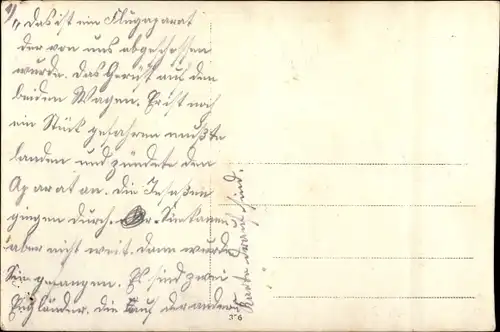 "Das ist ein Flugaparat
der von uns abgeschossen
wurde. Das Gerüst auf den
beiden Wagen. Er ist noch
ein Stück gefahren mußte
landen und zündete den
Aparat an. Die Insaßen
gingen durch. Sie kamen
aber nicht weit. dann wurden
Sie gefangen. Es sind zwei
Engländer. die auf der andern
Karte drauf sind.
356